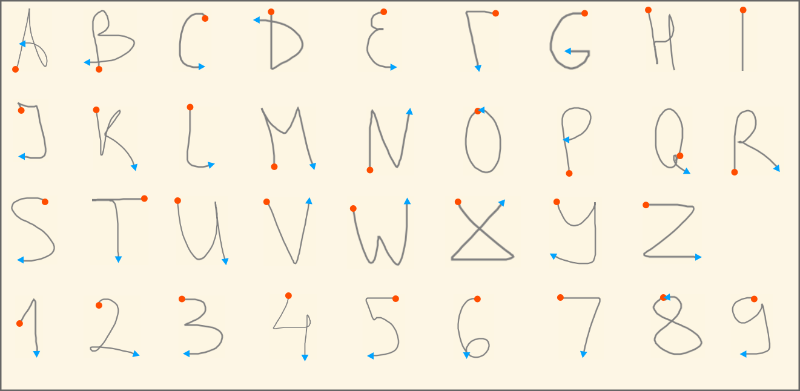 A B C D E F G H I
J K L M N O P Q R
S T U V W X Y Z
1 2 3 4 5 6 7 8 9